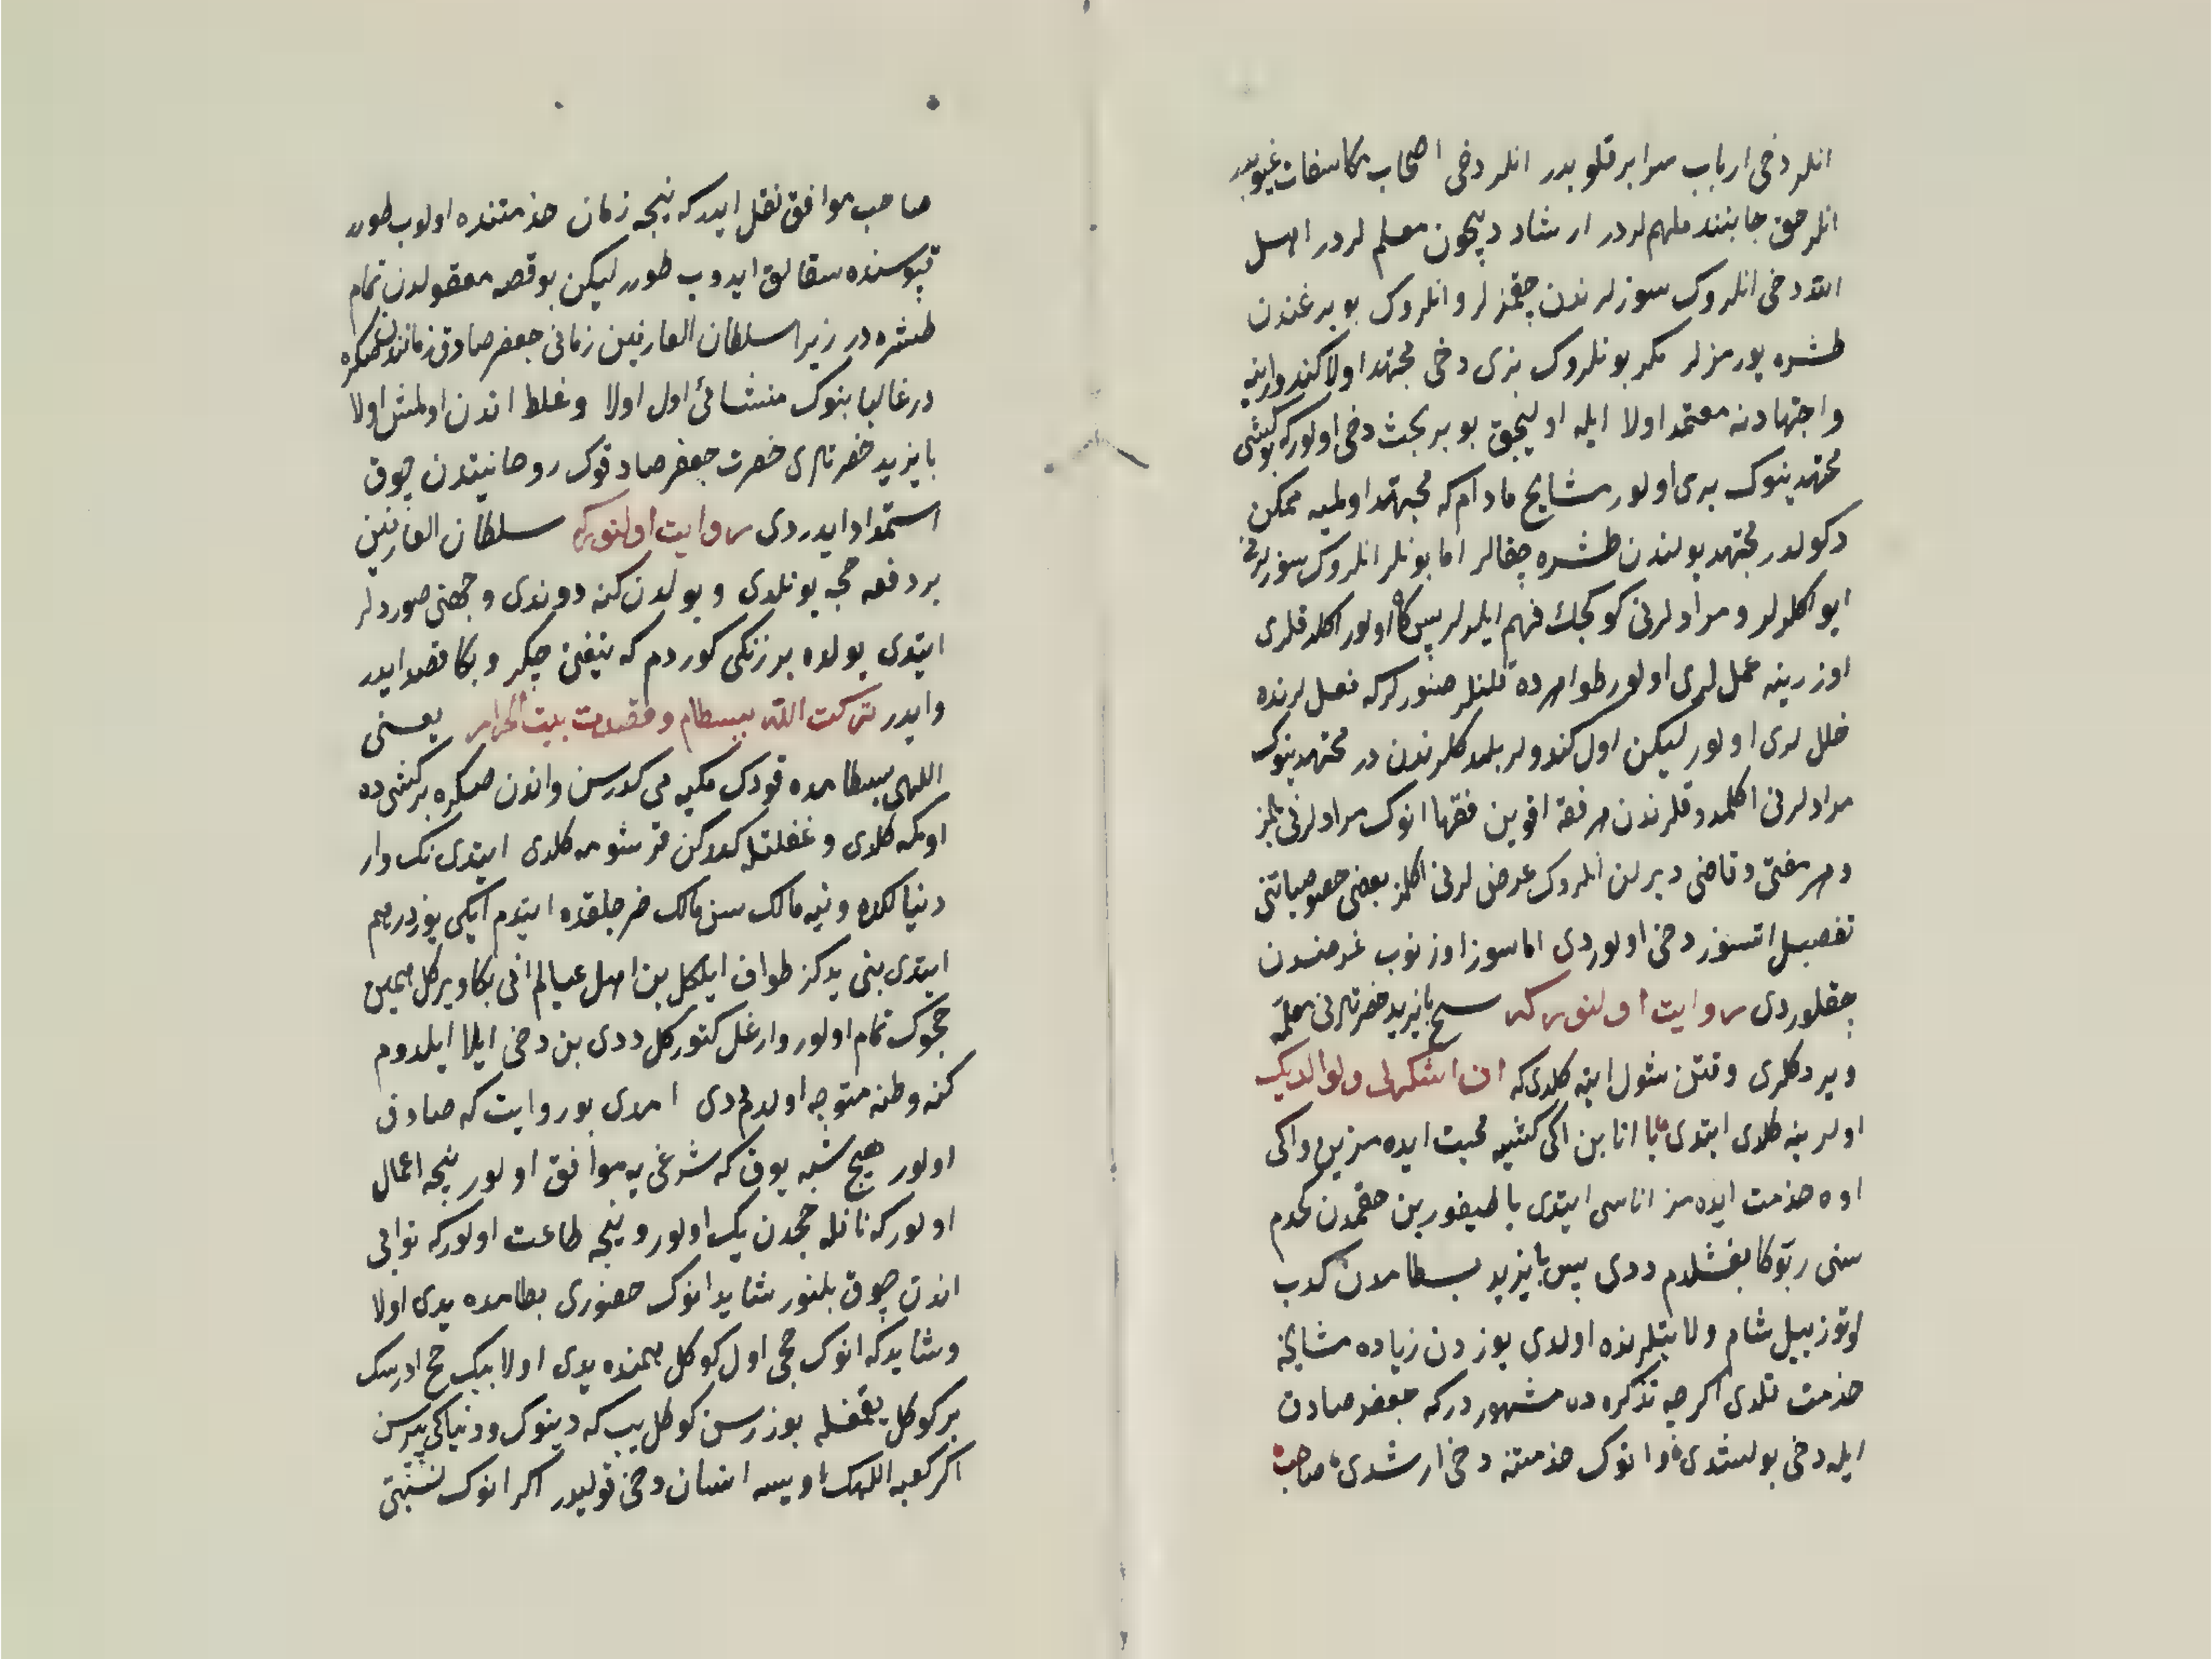 انلر دخی ارباب سرایر قلوبدر انلر دخی اصحاب مکاشفات غیوبدر
انلر حق جانبندن ملهم لردر ارشاد دیچون معلم لردر اهل
الله دخی انلروک سوزلرندن چقمزلر و انلروک بویرغندن
طشره یورمزلر مکر بونلروک بری دخی مجتهد اولا کندو راینه
و اجتهادنه معتمد اولا ایله اولیجق بو بر بحث دخی اولور که بو کشی
مجتهدینوک بری اولور مشایخ مادام که مجتهد اولمیه ممکن
دکولدر مجتهد یولندن طشره چقالر اما بونلر انلروک سوزلرنی
ایو اکلرلر و مرادلرنی کوکجک فهم ایلرلر پس کاه اولور اکلدقلری
اوزرینه عمللری اولور ظواهرده قلنلر صنور کرکه فعللرنده
خللری اولور لیکن اول کندولر بلمدکلرندن در مجتهدینوک
مرادلرنی اکلمدوقلرندن هر فقه اقوین فقها انوک مرادلرنی بلمز
و هر مفتی و قاضی دیرلن انلروک غرضلرنی اکلمز بعضی خصوصیاتنی
تفصیل اتسوز دخی اولوردی اما سوز اوزنوب غرضدن
چقلوردی روایت اولنور که شیخ بایزید حضرتلرنی معلمه
ویردکلری وقتن شول ایته کلدی که ان اشکرلی ولوالدیک
اولرینه کلدی ایتدی یا انا بن اکی کشیه محبت ایده مزین و اکی
اوه خذمت ایده مز اناسی ایتدی یا طیفور بن حقمدن کچدم
سنی ربوکا بغشلدم ددی پس بایزید بسطامدن کدب
اوتوز ییل شام ولایتلرنده اولدی یوزدن زیاده مشایخه
خذمت قلدی اکرچه تذکره ده مشهور درکه جعفر صادق
ایله دخی بولشدی و انوک خذمتنه دخی ارشدی صاحب
صاحب موافق نقل ایدر که نیجه زمان خذمتنده اولوب طورر
قپوسنده سقالق ایدوب طورر لیکن بو قصه معقولدن تمام
طشره در زیرا سلطان العارفین زمانی جعفر صادق زمانندن صکره
در غالبا بنوک منشائی اول اولا و غلط اندن اولمش اولا
بایزید حضرتلری حضرت جعفر صادقوک روحانیتدن چوق
استمداد ایدردی روایت اولنور که سلطان العارفین
بر دفعه حجه یونلدی و یولدن کنه دوندی و جهتنی صوردلر
ایتدی یولده بر زنکی کوردم که تیغن چکر و بکا قصد ایدر
و ایدر ترکت الله ببسطام و قصدت بیت الحرام یعنی
اللهی بسطامده قودک مکیه می کدرسن و اندن صکره بر کشی ده
اوکمه کلدی و غفلتله کدرکن قرشومه کلدی ایتدی نک وار
دنیالکده و نیه مالک سن مالک خرجلقده ایتدم ایکی یوز درهم
ایتدی بنی یدکز طواف ایلکل بن اهل عیالم انی بکا ویرکل همین
حجوک تمام اولور وارغل کتورکل ددی بن دخی ایلا ایلدوم
کنه وطنه متوجه اولدم ددی امدی بو روایت که صادق
اولور هیچ شبه یوق که شرعی یه موافق اولور نیجه اعمال
اولور که نافله حجدن یک اولور و نیجه طاعت اولور که ثوابی
اندن چوق بلنور شاید انوک حضوری بطامده یدی اولا
و شاید که انوک حجی اول کوکل یهمنده یدی اولا بیک حج ادرسک
بر کوکل یقمغله بوزرسن کوکل یپ که دینوک و دنیاکی یپرسن
اکر کعبه اللهک اویسه انسان دخی قولیدر اکر انوک نسبتی